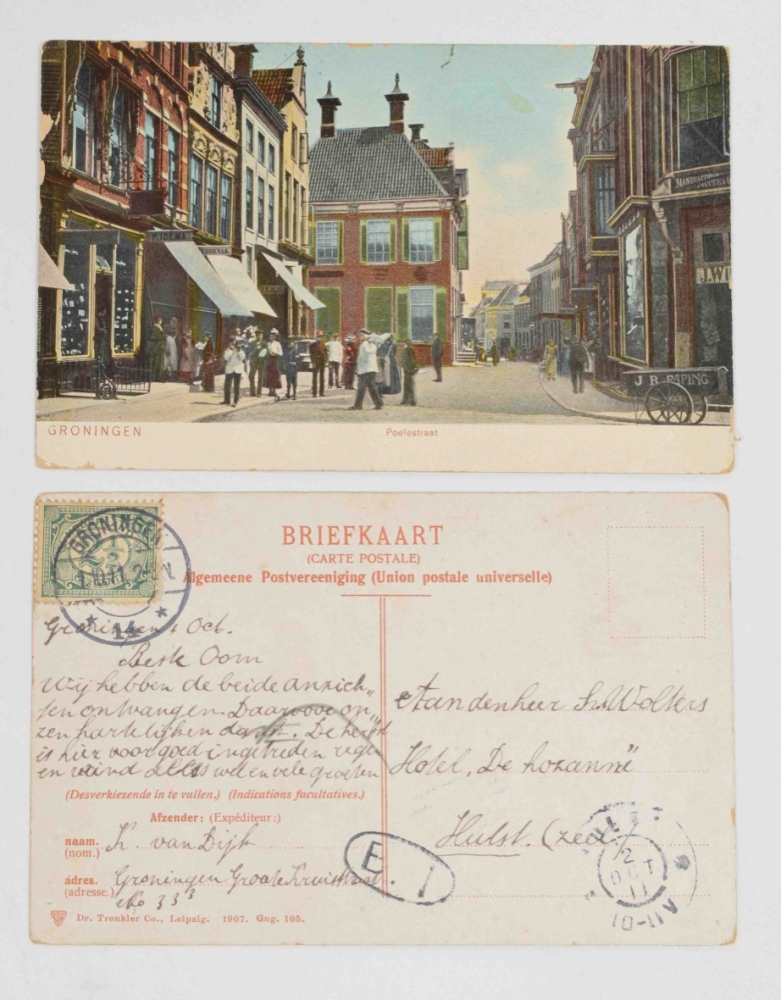 P. IDEMA
MANUFACTUREN
J.W
J. B. PAPING
GRONINGEN
Poelestraat
BRIEFKAART
(CARTE POSTALE)
Algemeene Postvereeniging (Union postale universelle)
GRONINGEN
1.10.11. 2-
* 14 *
Groningen 1 Oct.
Beste Oom
Wij hebben de beide anzich„
ten ontvangen. Daarvoor on„
zen hartelijken dank. De herfst
is hier voorgoed ingetreden regen
en wind alles wel en vele groeten
(Desverkiezende in te vullen.) (Indications facultatives.)
Afzender: (Expéditeur:)
naam.
(nom.)
K. van Dijk
adres.
(adresse.)
Groningen Groote Kruisstraat
33
Dr. Trenkler Co., Leipzig. 1907. Gng. 105.
Aan den heer Wolters
Hotel, De
Hulst. (Zeel.)
E. 1
HULST
2
OCT
11
10-11V